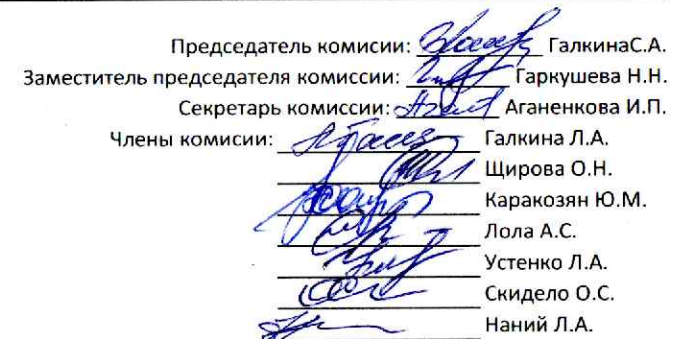 Председатель комисии: ГалкинаС.А.
Заместитель председателя комиссии: Гаркушева Н.Н.
Секретарь комиссии: Аганенкова И.П.
Члены комисии: Галкина Л.А.
Щирова О.Н.
Каракозян Ю.М.
Лола А.С.
Устенко Л.А.
Скидело О.С.
Наний Л.А.